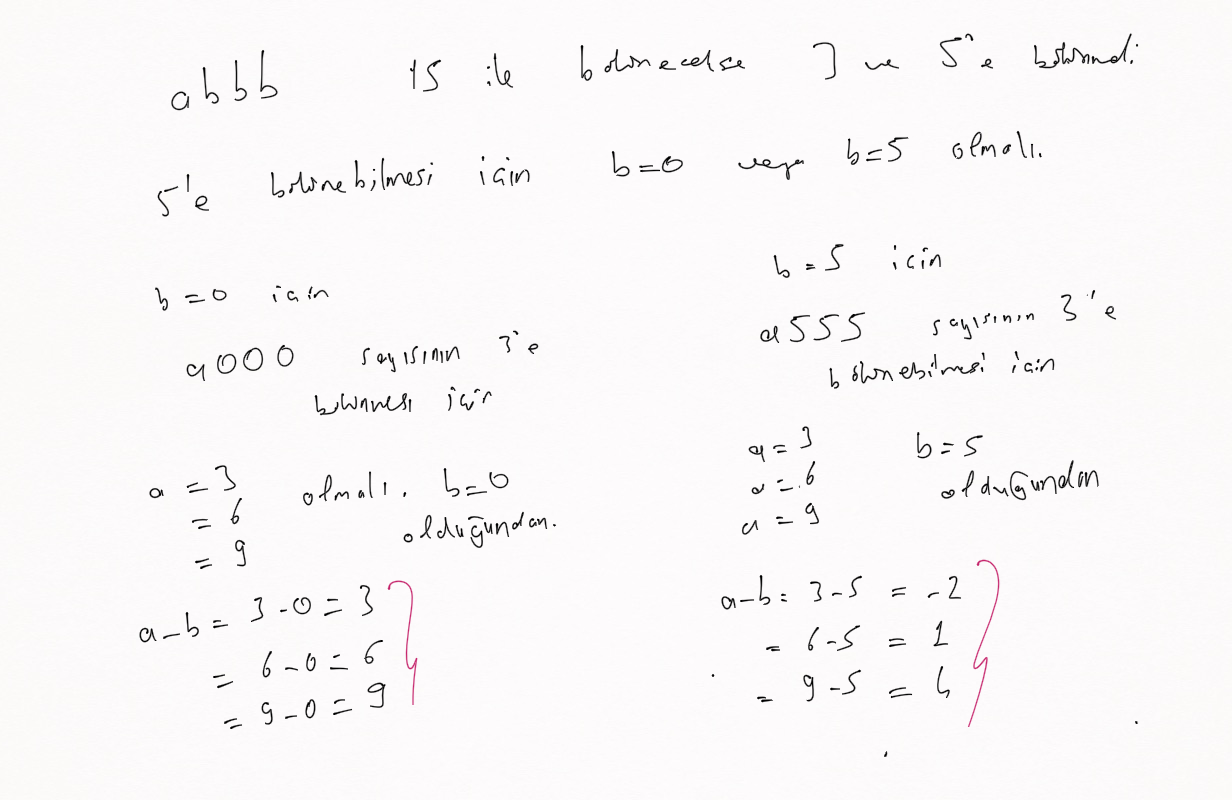 abbb 15 ile bölünecekse 3 ve 5'e bölünmeli
5'e bölünebilmesi için b=0 veya b=5 olmalı.
b=0 için
a000 sayısının 3'e
bölünmesi için
a = 3 olmalı. b=0
= 6 olduğundan.
= 9
a-b = 3-0 = 3
= 6-0 = 6
= 9-0 = 9
b=5 için
a555 sayısının 3'e
bölünebilmesi için
a = 3 b=5
a = 6 olduğundan
a = 9
a-b = 3-5 = -2
= 6-5 = 1
= 9-5 = 4